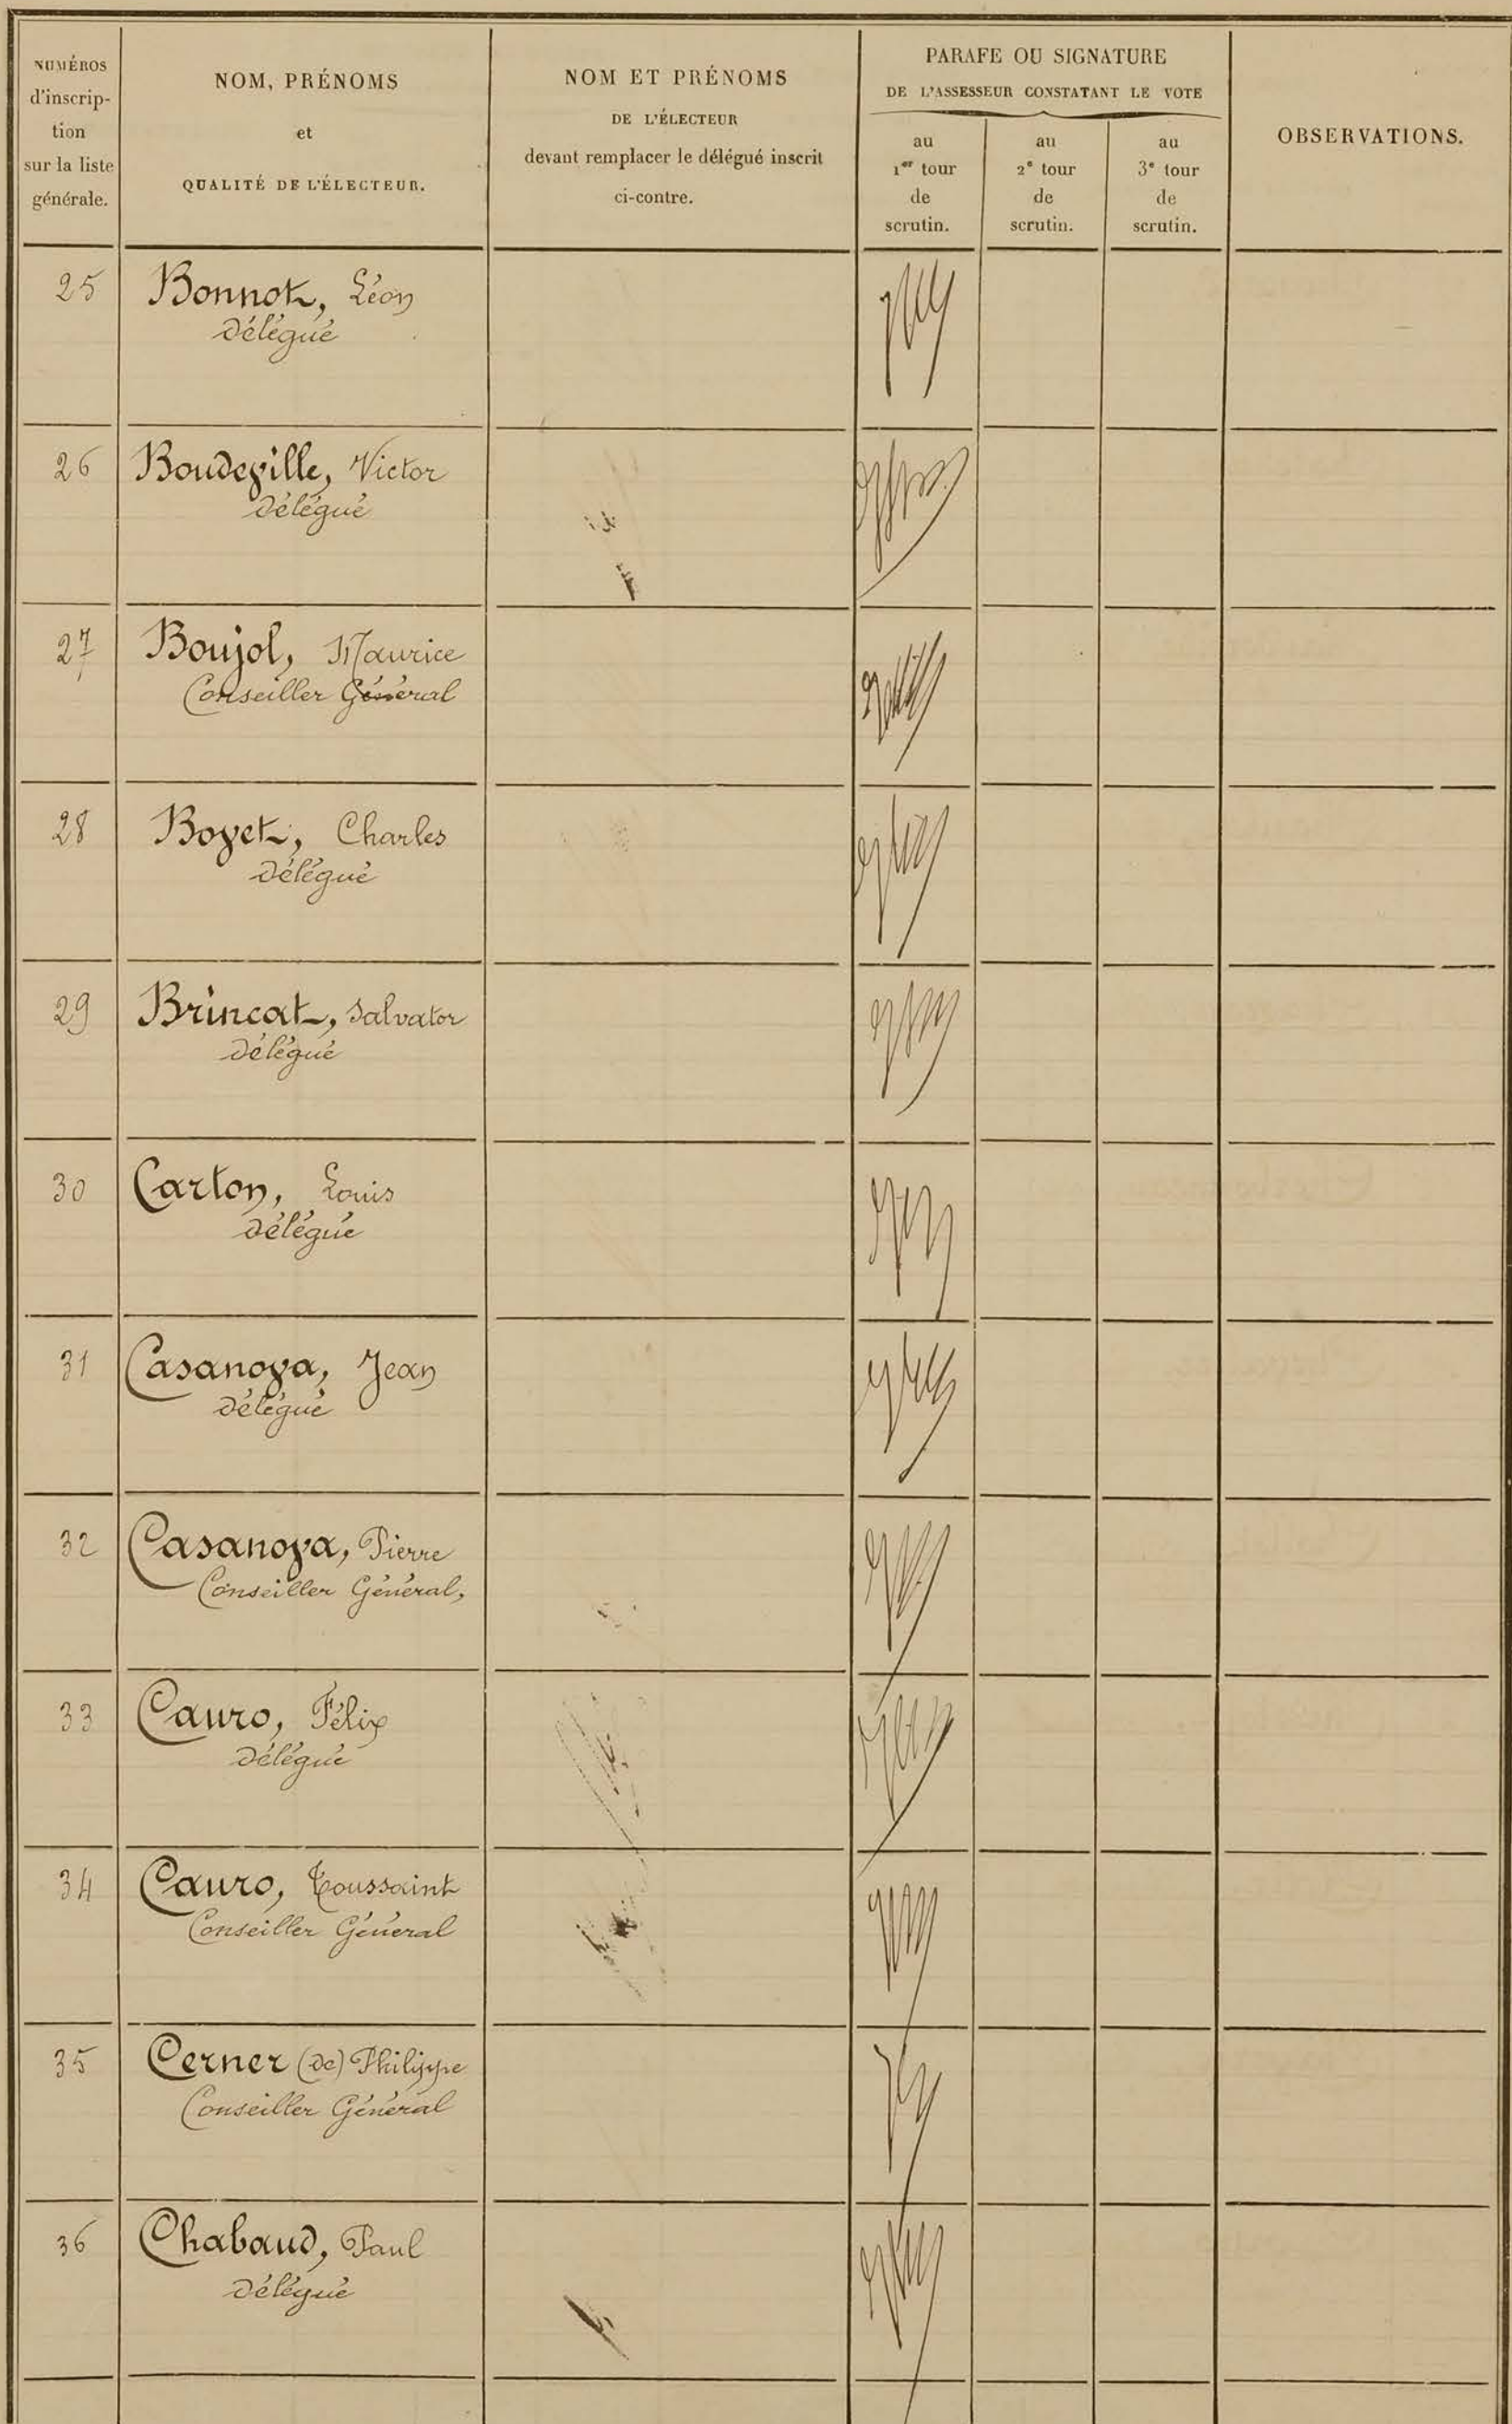 NUMÉROS
d'inscrip-
tion
sur la liste
générale.
NOM, PRÉNOMS
et
QUALITÉ DE L'ÉLECTEUR.
NOM ET PRÉNOMS
DE L'ÉLECTEUR
devant remplacer le délégué inscrit
ci-contre.
PARAFE OU SIGNATURE
DE L'ASSESSEUR CONSTATANT LE VOTE
au
1er tour
de
scrutin.
au
2e tour
de
scrutin.
au
3e tour
de
scrutin.
OBSERVATIONS.
25 Bonnot, Léon
Délégué
26 Boudeville, Victor
Délégué
27 Boujol, Maurice
Conseiller Général
28 Boyet, Charles
Délégué
29 Brincat, Salvator
Délégué
30 Carton, Louis
Délégué
31 Casanova, Jean
Délégué
32 Casanova, Pierre
Conseiller Général,
33 Cauro, Félix
Délégué
34 Cauro, Toussaint
Conseiller Général
35 Cerner (de) Philippe
Conseiller Général
36 Chabaud, Paul
Délégué